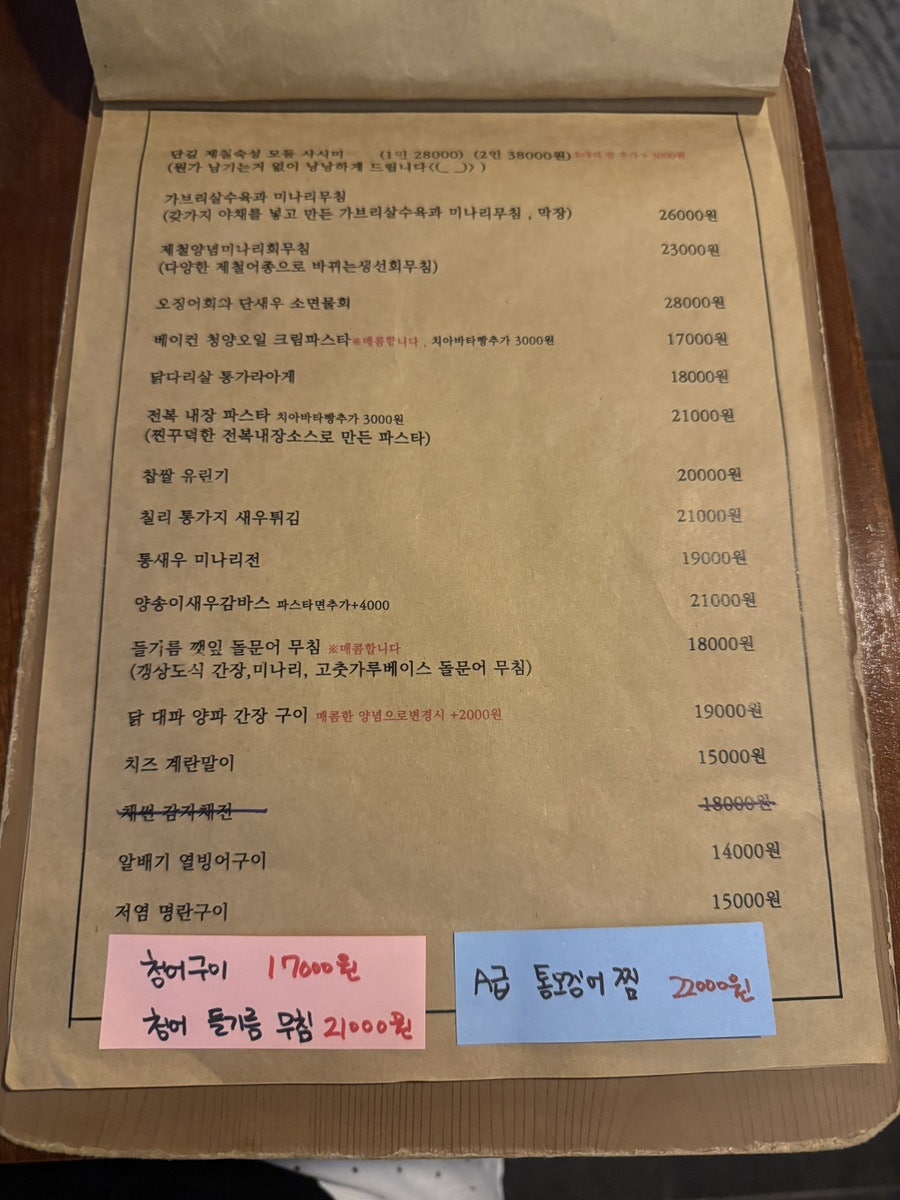 단길 제철숙성 모듬 사시미 (1인 28000) (2인 38000원) 추가 + 3000원
(뭔가 남기는거 없이 낭낭하게 드립니다<(_ _)> )
가브리살수육과 미나리무침
(갖가지 야채를 넣고 만든 가브리살수육과 미나리무침 , 막장) 26000원
제철양념미나리회무침 23000원
(다양한 제철어종으로 바뀌는생선회무침)
오징어회와 단새우 소면물회 28000원
베이컨 청양오일 크림파스타※매콤합니다 , 치아바타빵추가 3000원 17000원
닭다리살 통가라아게 18000원
전복 내장 파스타 치아바타빵추가 3000원 21000원
(찐꾸덕한 전복내장소스로 만든 파스타)
찹쌀 유린기 20000원
칠리 통가지 새우튀김 21000원
통새우 미나리전 19000원
양송이새우감바스 파스타면추가+4000 21000원
들기름 깻잎 돌문어 무침 ※매콤합니다 18000원
(갱상도식 간장,미나리, 고춧가루베이스 돌문어 무침)
닭 대파 양파 간장 구이 매콤한 양념으로변경시 +2000원 19000원
치즈 계란말이 15000원
채썬 감자채전 18000원
알배기 열빙어구이 14000원
저염 명란구이 15000원
청어구이 17000원
청어 들기름 무침 21000원
A급 통오징어 찜 22000원